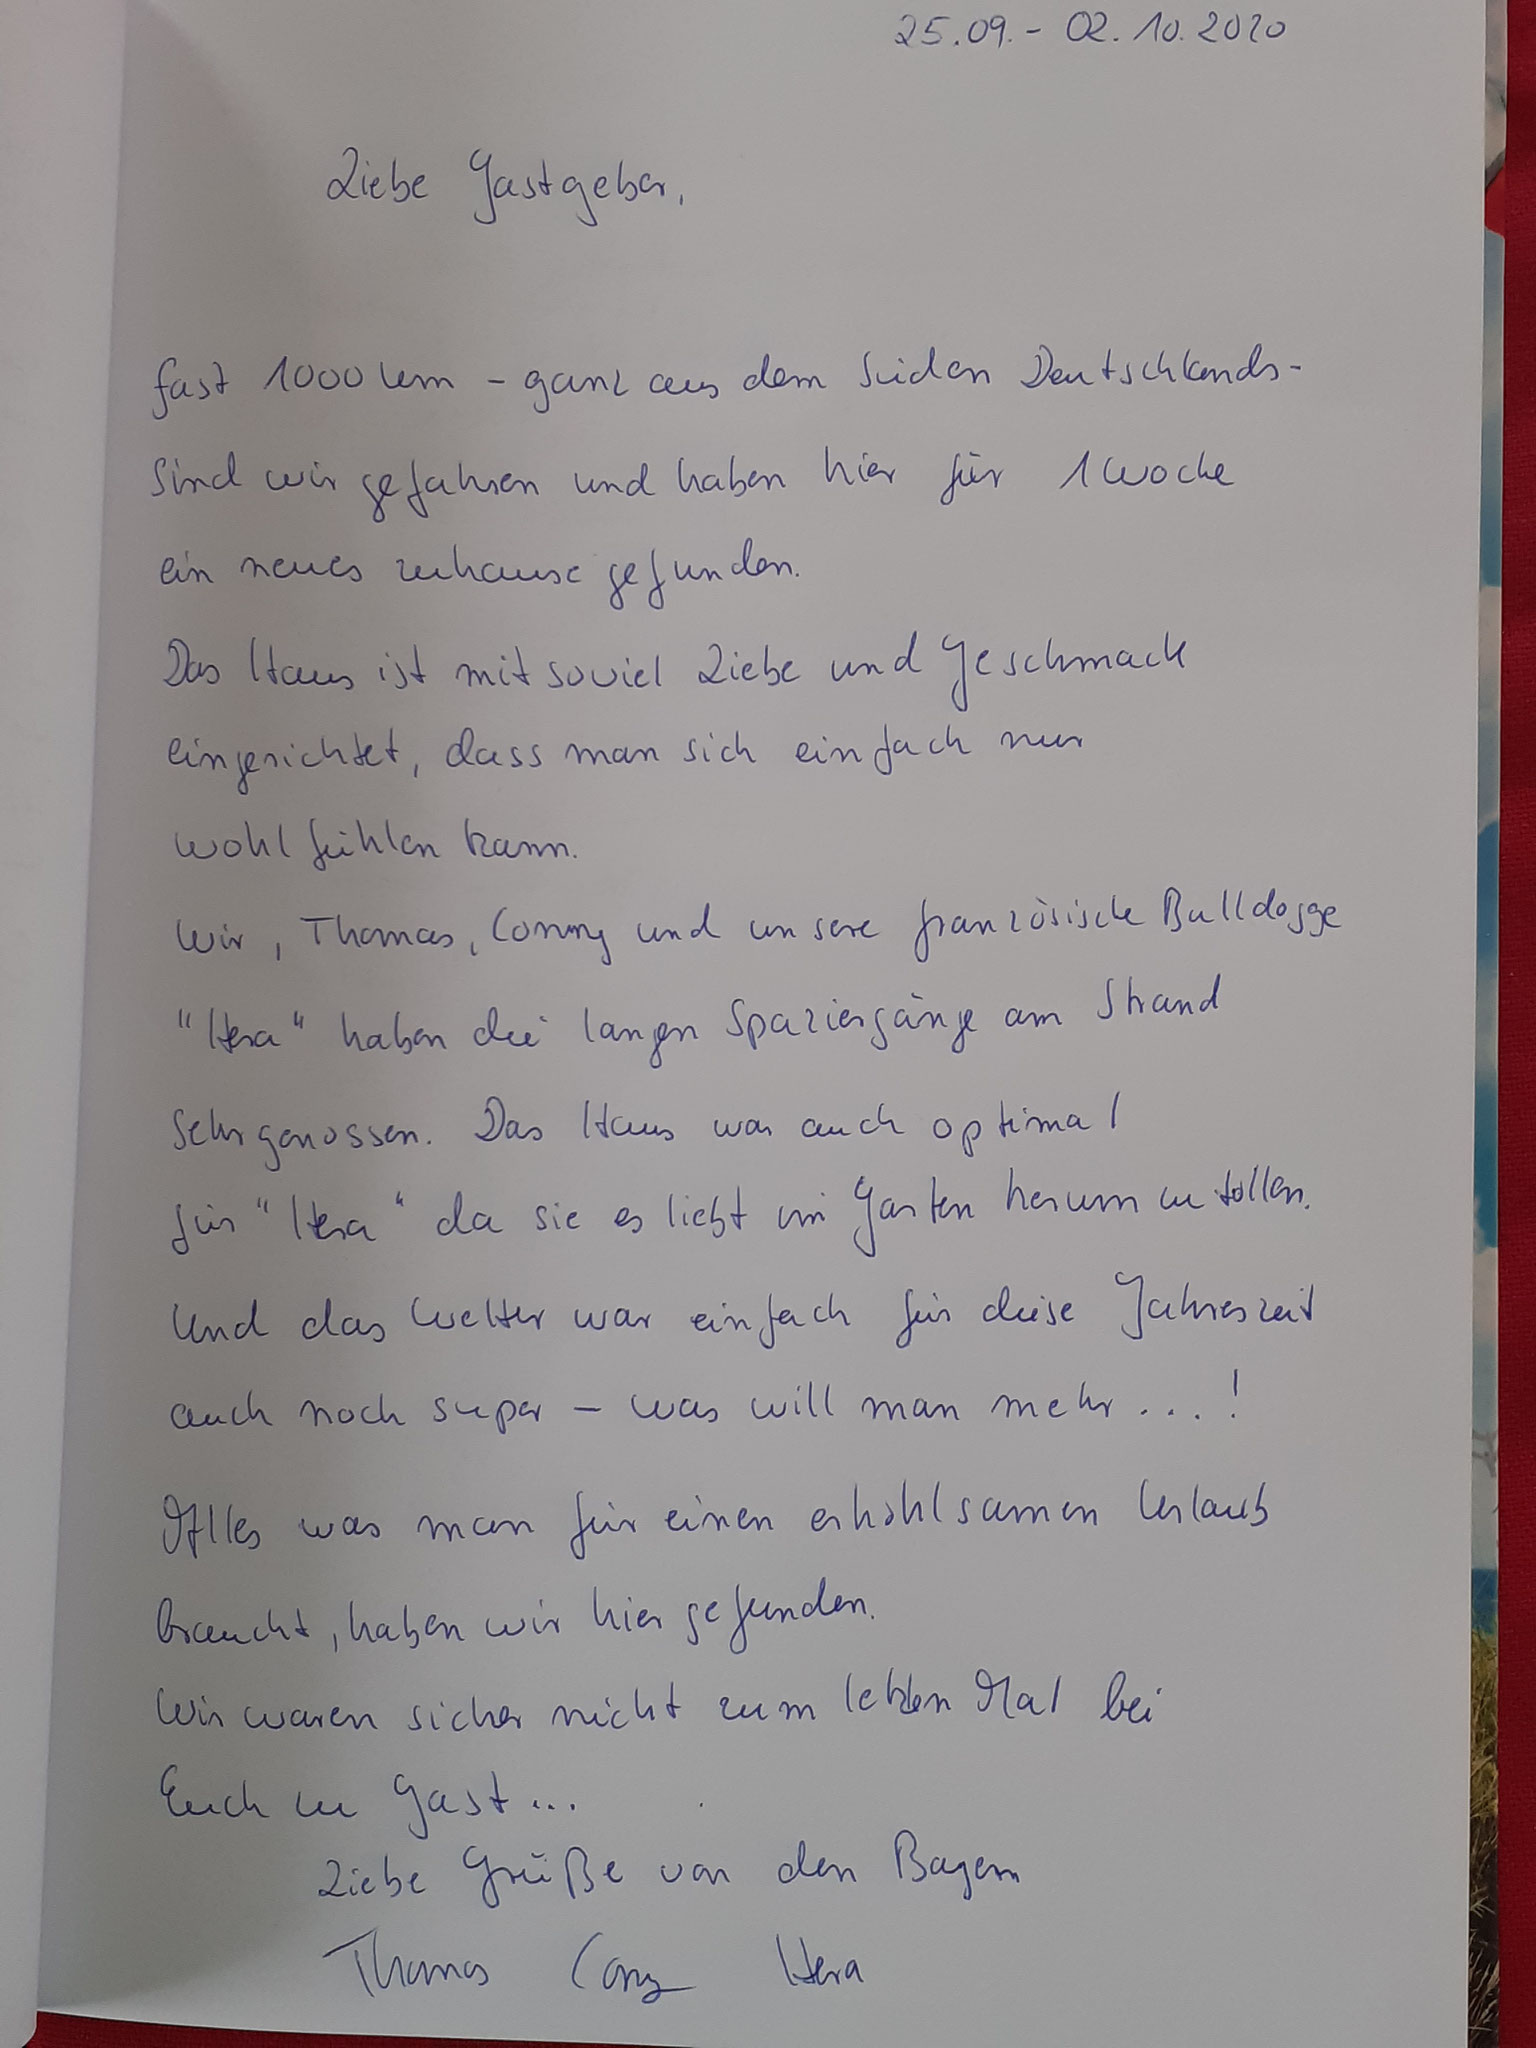 25.09.- 02.10.2020
Liebe Gastgeber,
fast 1000 km - ganz aus dem Süden Deutschlands-
sind wir gefahren und haben hier für 1 Woche
ein neues zuhause gefunden.
Das Haus ist mit soviel Liebe und Geschmack
eingerichtet, dass man sich einfach nur
wohl fühlen kann.
Wir, Thomas, Conny und unsere französische Bulldogge
"Hera" haben die langen Spaziergänge am Strand
sehr genossen. Das Haus war auch optimal
für "Hera" da sie es liebt im Garten herum zu tollen.
Und das Wetter war einfach für diese Jahreszeit
auch noch super - was will man mehr ... !
Alles was man für einen erhohlsamen Urlaub
braucht, haben wir hier gefunden.
Wir waren sicher nicht zum letzten Mal bei
Euch zu Gast ...
Liebe Grüße von den Bayern
Thomas Conny Hera